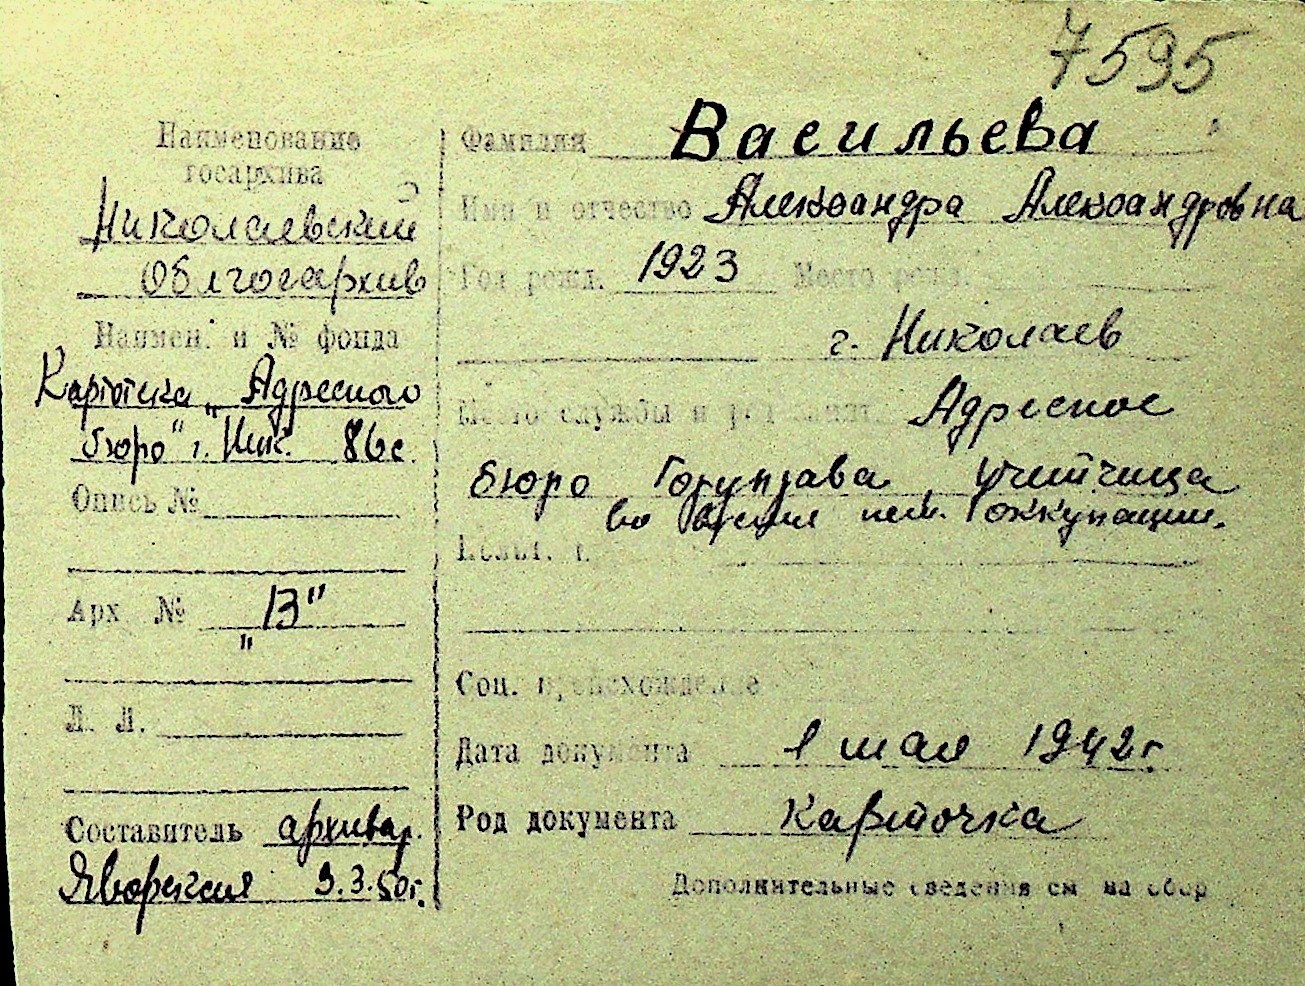 7595
Наименование
госархива
Николаевский
Облгосархив
Наимен. и № фонда
Картотека „Адресного
бюро" г. Ник. 86с
Опись №
Арх №
„В"
Л. Л.
Составитель архивар.
Яворская 3.3.50г.
Фамилия Васильева
Имя и отчество Александра Александровна
Год рожд. 1923 Место рожд.
г. Николаев
Место службы и Адресное
бюро Горуправа, учетчица
во время нем. оккупации.
Соц. происхождение
Дата документа 1 мая 1942г
Род документа Карточка
Дополнительные сведения см на обор